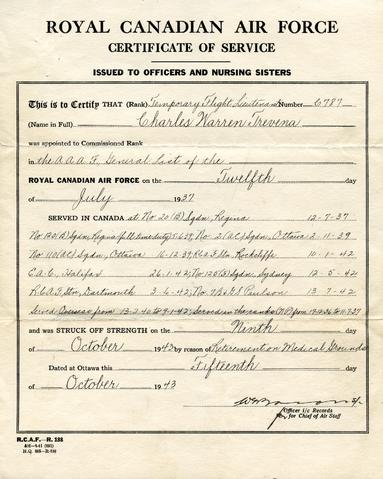 ROYAL CANADIAN AIR FORCE
CERTIFICATE OF SERVICE
ISSUED TO OFFICERS AND NURSING SISTERS
This is to Certify THAT (Rank) Temporary Flight Lieutenant Number C787
(Name in Full) Charles Warren Trevena
was appointed to Commissioned Rank
in the A.A.A.F. General List of the
ROYAL CANADIAN AIR FORCE on the Twelfth day
of July 1937
SERVED IN CANADA at No. 20 (B) Sqdn, Regina 12-7-37
No 120 (B) Sqdn, Regina (full time duty) No 2 (AC) Sqdn, Ottawa 2-11-39
No 110 (AC) Sqdn, Ottawa 16-12-39, Rockcliffe 10-1-42
E.A.C., Halifax 26-1-42; No 120 (B) Sqdn, Sydney 12-5-42
R.C.A.F. Stn, Dartmouth 3-6-42; No 7 B&G S Paulson 13-7-42
Served Overseas from 13-2-40 to 9-1-42; Served in the ranks
and was STRUCK OFF STRENGTH on the Ninth day
of October 1943 by reason of Retirement on Medical Grounds
Dated at Ottawa this Fifteenth day
of October 1943
Officer i/c Records
for Chief of Air Staff
R.C.A.F.—R. 138